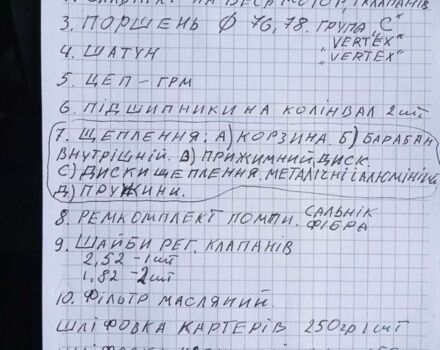 3. ПОРШЕНЬ Ф 76,78. ГРУПА "С"
"VERTEX"
4. ШАТУН "VERTEX"
5. ЦЕП – ГРМ
6. ПІДШИПНИКИ НА КОЛІНВАЛ 2 шт
7. ЩЕПЛЕННЯ: А) КОРЗИНА. Б) БАРАБАН
ВНУТРІШНІЙ. В) ПРИЖИМНИЙ ДИСК.
С) ДИСКИ ЩЕПЛЕННЯ. МЕТАЛІЧНІ І АЛЮМІНІЄВ
Д) ПРУЖИНИ.
8. РЕМКОМПЛЕКТ ПОМПИ. САЛЬНІК
ФІБРА
9. ШАЙБИ РЕГ. КЛАПАНІВ
2,52 – 1 шт
1,82 – 2 шт
10. ФІЛЬТР МАСЛЯНИЙ.
ШЛІФОВКА КАРТЕРІВ 250гр 1 шт